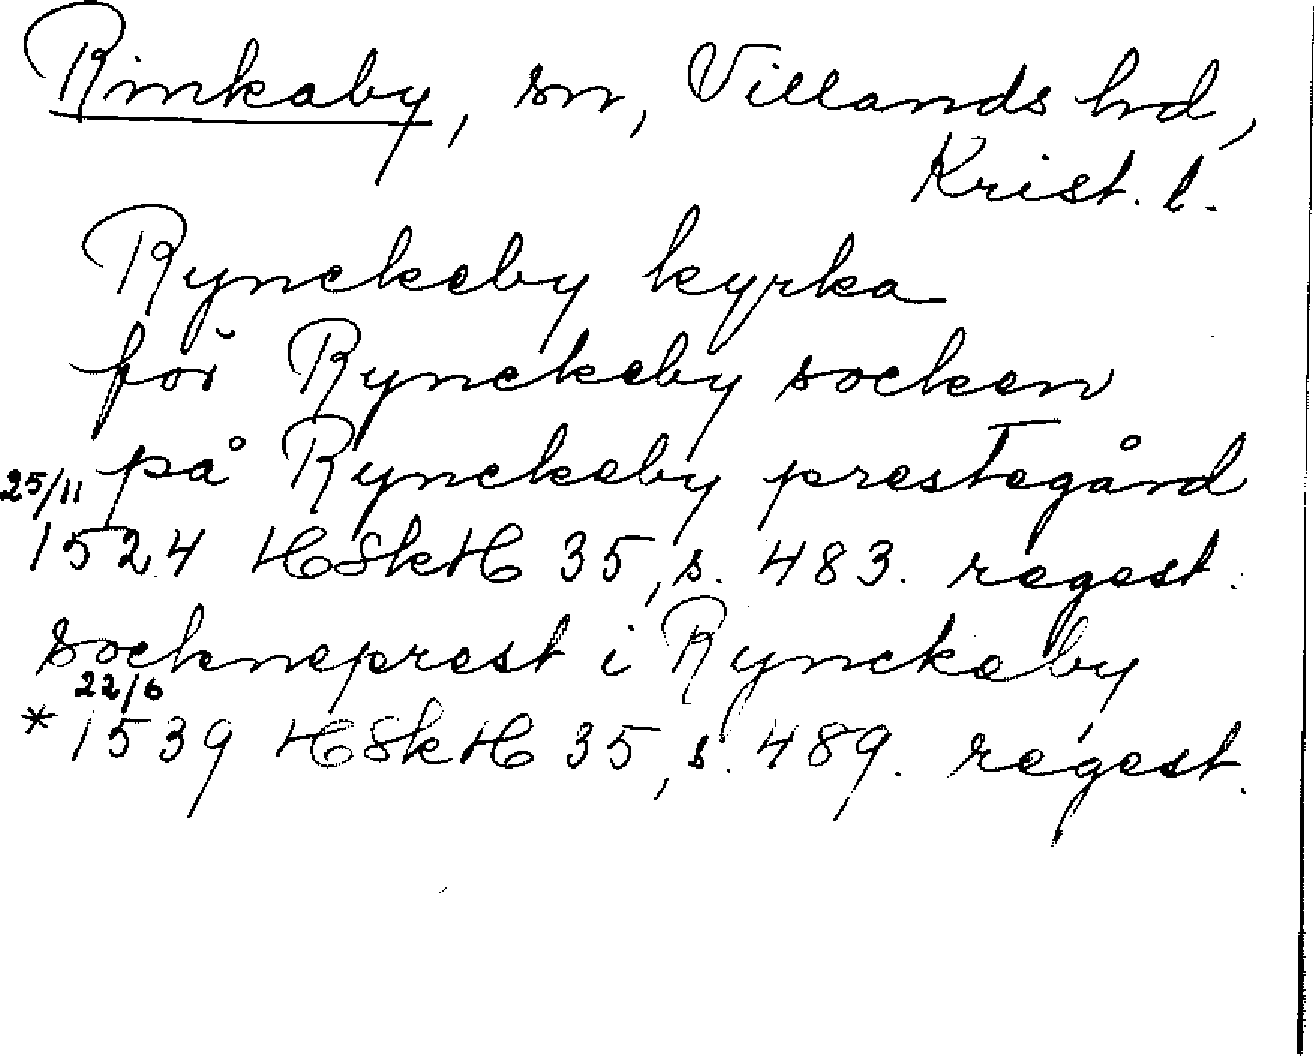 Rinkaby, sn, Villands hd,
Krist. l.
Rynckeby kyrka
för Rynckeby socken
på Rynckeby prestegård
25/11
1524 HSkH 35, s. 483. regest.
sockneprest i Rynckeby
22/6
* 1539 HSkH 35, s. 489. regest.